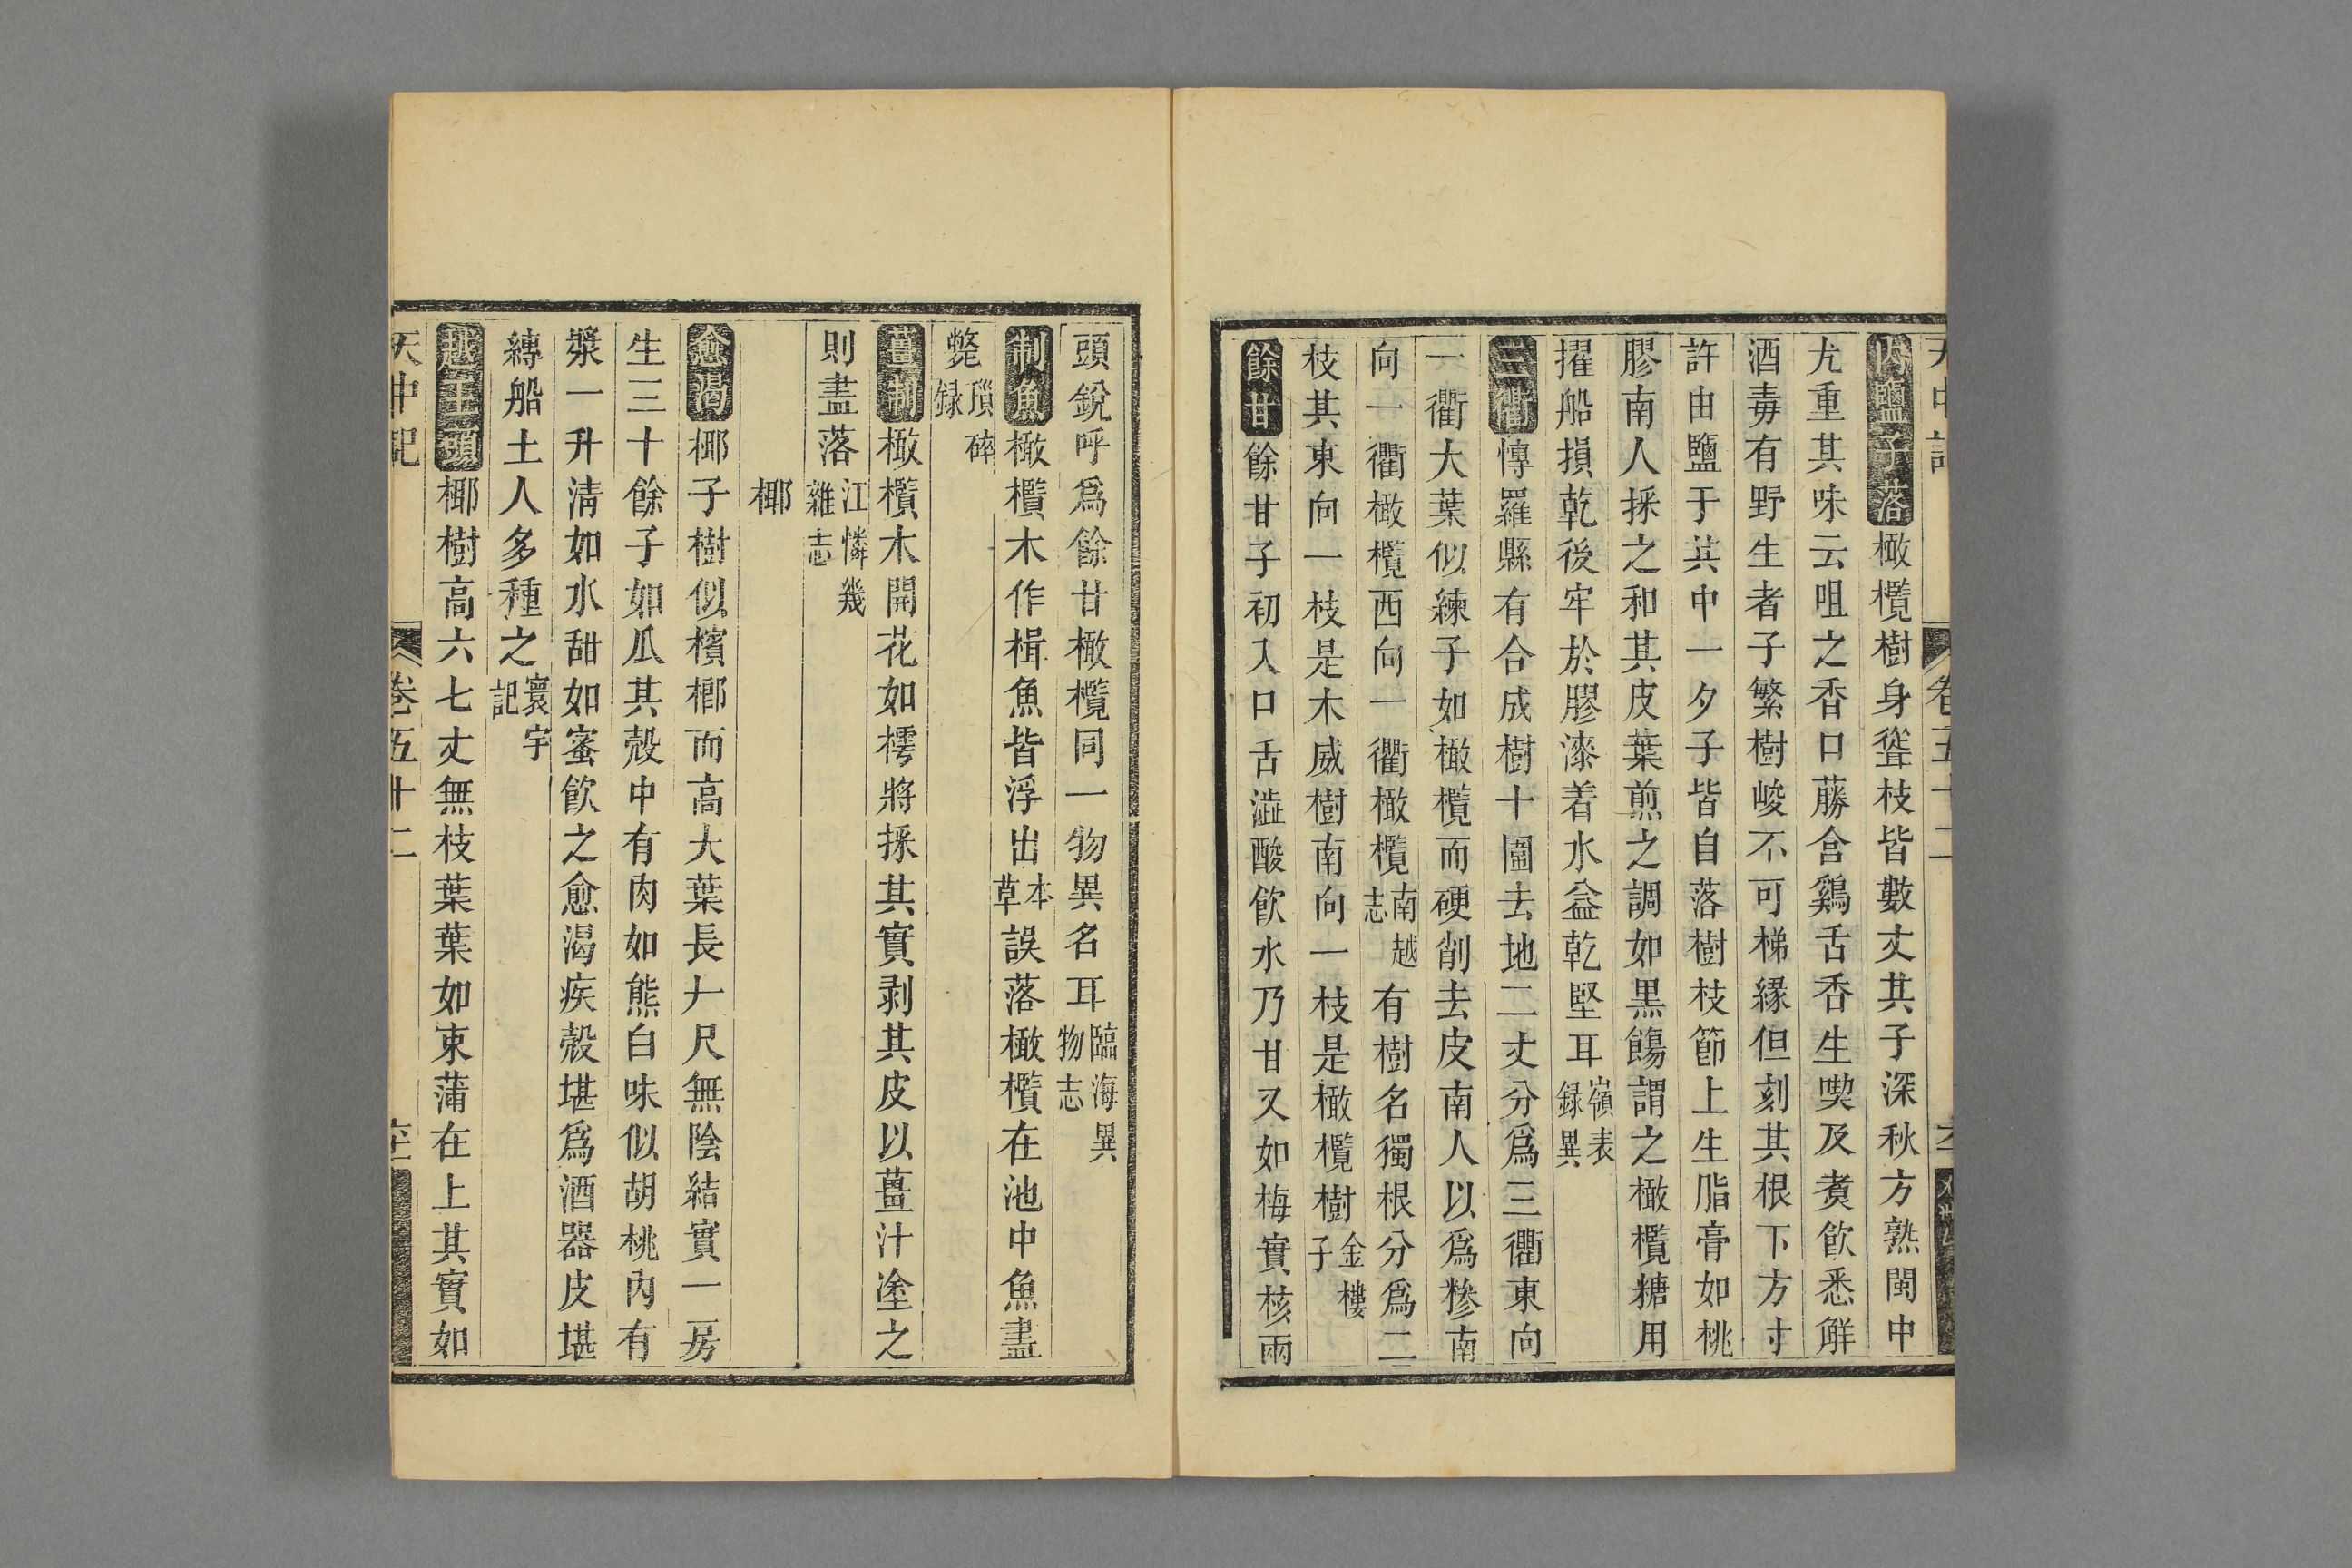 天中記 卷五十二
內鹽子落橄欖樹身聳枝皆數丈其子深秋方熟閩中
尤重其味云咀之香口藤含鷄舌香生喫及煑飲悉解
酒毒有野生者子繁樹峻不可梯緣但刻其根下方寸
許由鹽于其中一夕子皆自落樹枝節上生脂膏如桃
膠南人採之和其皮葉煎之調如黒餳謂之橄欖糖用
擢船損乾後牢於膠漆着水益乾堅耳嶺表録異
三衢愽羅縣有合成樹十圍去地二丈分爲三衢東向
一衢大葉似練子如橄欖而硬削去皮南人以爲糝南
向一衢橄欖西向一衢橄欖南越志有樹名獨根分爲二
枝其東向一枝是木威樹南向一枝是橄欖樹金樓子
餘甘餘甘子初入口舌澁酸飲水乃甘又如梅實核兩
頭銳呼爲餘甘橄欖同一物異名耳臨海異物志
制魚橄欖木作楫魚皆浮出本草誤落橄欖在池中魚盡
斃瑣碎録
薑制橄欖木開花如樗將採其實剥其皮以薑汁塗之
則盡落江憐幾雜志
椰
愈渴椰子樹似檳榔而高大葉長一尺無陰結實一房
生三十餘子如瓜其殼中有肉如熊白味似胡桃內有
漿一升清如水甜如蜜飲之愈渴疾殼堪爲酒器皮堪
縛船土人多種之寰宇記
越王頭椰樹高六七丈無枝葉葉如束蒲在上其實如
天中記 卷五十二